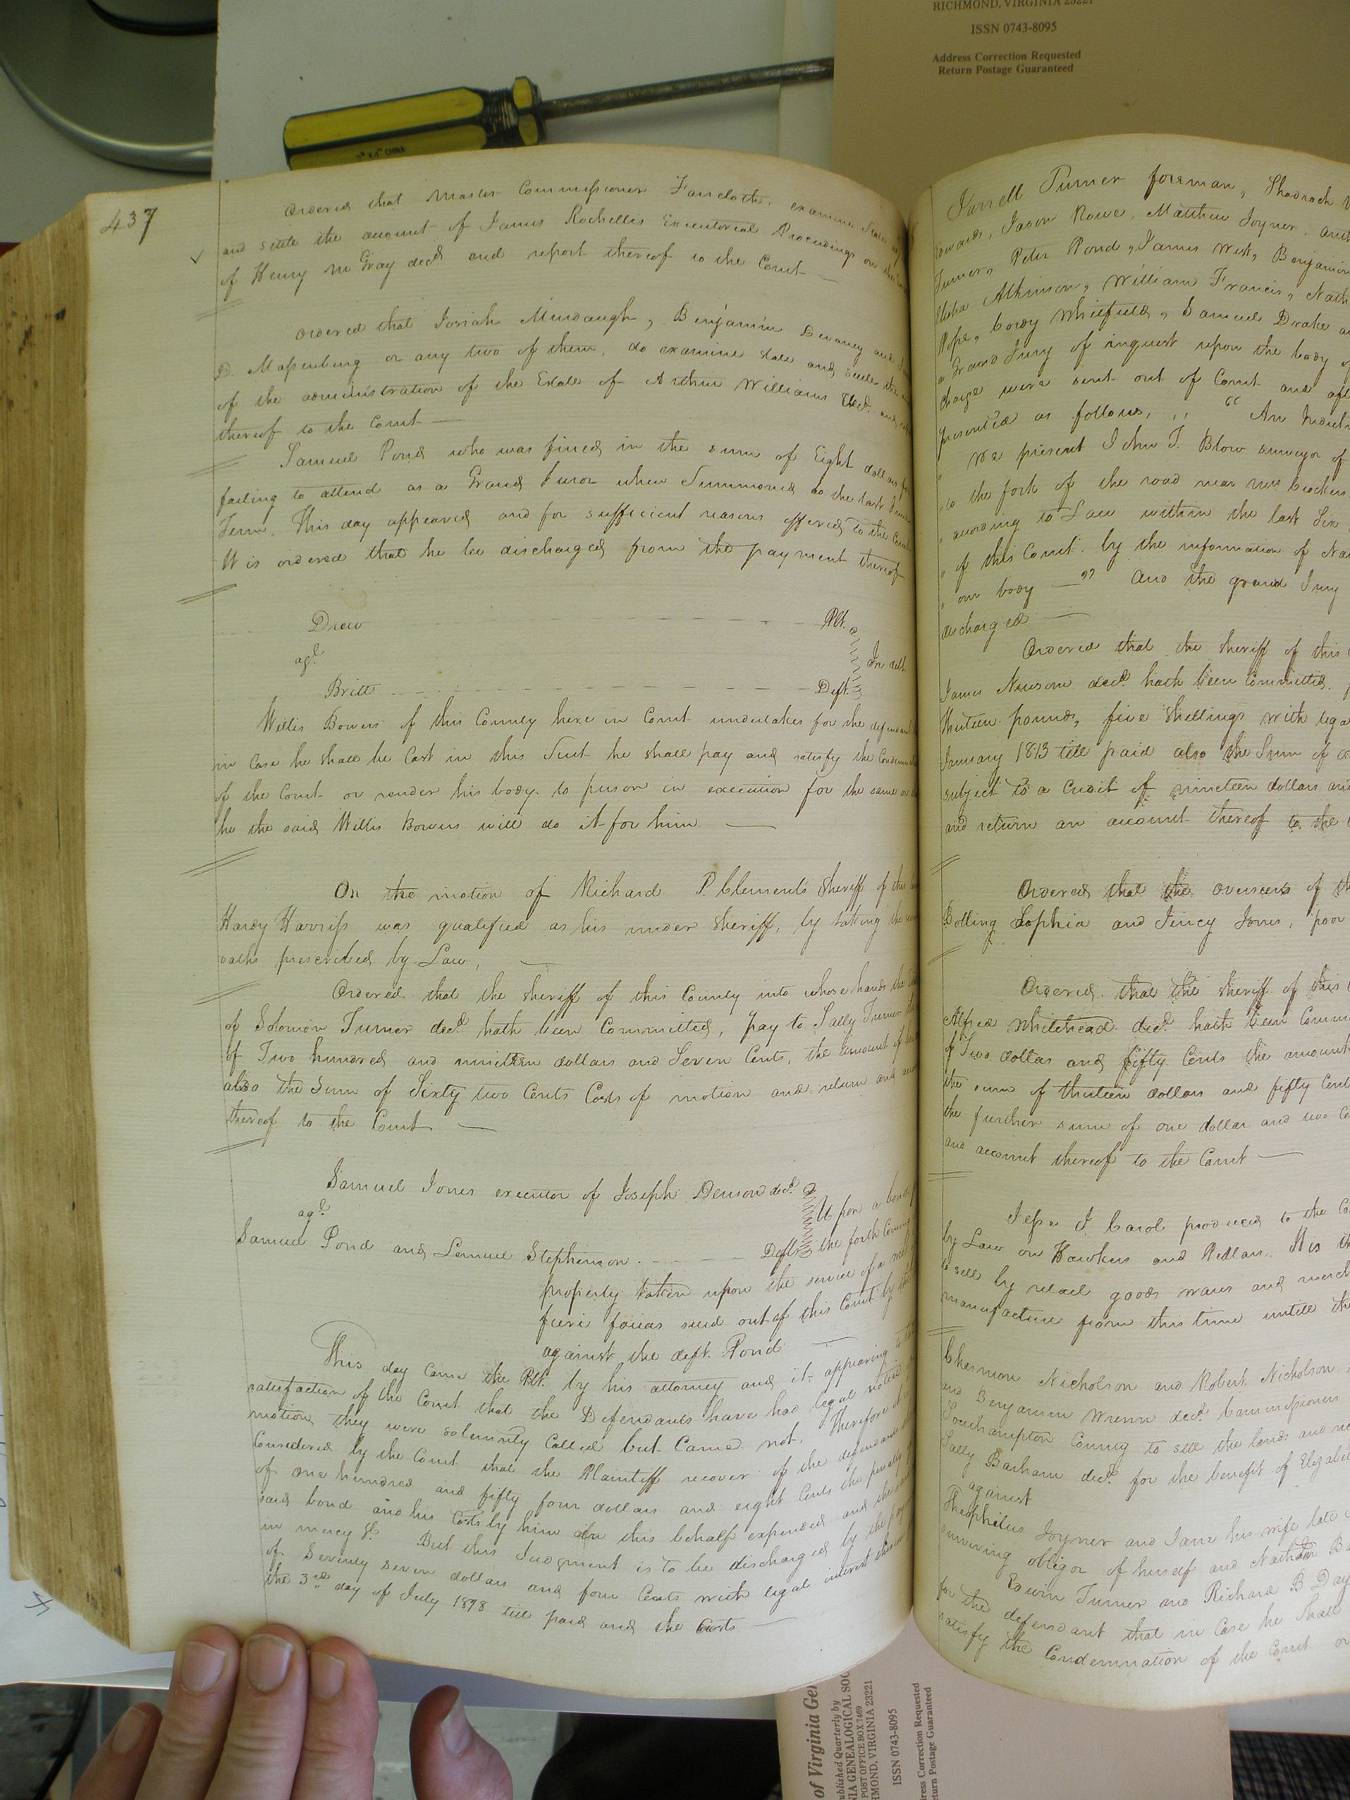 RICHMOND, VIRGINIA 23221
ISSN 0743-8095
Address Correction Requested
Return Postage Guaranteed
437
Ordered that Master Commissioner Faircloth, examine State
and settle the account of James Rochelles Executorial Proceedings on the
of Henry M Gray decd and report thereof to the Court
Ordered that Josiah Benjamin Devaney and
D. Massenburg or any two of them, do examine state and settle the
of the administration of the Estate of Arthur Williams decd. and
thereof to the Court
Samuel Pond who was fined in the sum of Eight dollars for
failing to attend as a Grand Juror when Summoned to the last June
Term. This day appeared and for sufficient reasons offered to the Court
It is ordered that he be discharged from the payment thereof
Drew Plt.
agt.
In
Britt Deft.
Willis Bowers of this County here in Court undertakes for the defendant
in case he shall be Cast in this Suit he shall pay and satisfy the
of the Court or render his body to prison in execution for the same or
he the said Willis Bowers will do it for him
On the motion of Richard P Clements Sheriff of this
Hardy Harriss was qualified as his under Sheriff, by taking the
oaths prescribed by Law,
Ordered that the sheriff of this County into whose hands the
of Solomon Turner decd. hath been Committed, pay to Sally Turner
of Two hundred and nineteen dollars and Seven Cents, the amount of
also the Sum of Sixty two Cents Costs of motion and return an
thereof to the Court
Samuel Jones executor of Joseph Denson decd.
agt.
Upon a bond
Samuel Pond and Lemuel Stephenson Defts the forth Coming
property taken upon the service of a
fieri facias sued out of this Court by
against the deft. Pond
This day came the Plt. by his attorney and it appearing to the
satisfaction of the Court that the Defendants have had legal notice
motion, they were solemnly Called but Came not. Therefore it
Considered by the Court that the Plaintiff recover of the defendants
of one hundred and fifty four dollars and eight Cents the penalty
said bond and his Costs by him in this behalf expended and the
in mercy &c But this Judgment is to be discharged by the
of Seventy seven dollars and four Cents with legal interest
the 3rd day of July 1898 till paid and the Costs
Jarrell Turner foreman, Shadrach
Edwards, Jason Rowe, Matthew Joyner,
Turner, Peter Pond, James West, Benjamin
Elisha Atkinson, William Francis,
Pope, Cordy Whitfield, Samuel Drake
a Grand Jury of inquest upon the body of
charge were sent out of Court and after
presented as follows, "An
" We present John T. Blow surveyor of
" to the fork of the road near
" according to Law within the last Six
" of this Court by the information of
" our body —" And the grand Jury
discharged
Ordered that the sheriff of this
James Newsom decd. hath been Committed,
thirteen pounds, five shillings with legal
January 1813 till paid also the Sum of
subject to a Credit of nineteen dollars and
and return an account thereof to the
Ordered that the overseers of the
Bolling Sophia and Jincy Jones, poor
Ordered that the sheriff of this
Alfred Whitehead decd. hath been Comm
of Two dollars and fifty Cents the amount
the sum of thirteen dollars and fifty Cents
the further sum of one dollar and two
and account thereof to the Court
Jesse J. Carol produced to the
by Law on Hawkers and Pedlars. It is
to sell by retail goods wares and merch
manufacture from this time untill the
Chermon Nicholson and Robert Nicholson
and Benjamin Wrenn decd. Commissioners
Southampton County to sell the land and
Sally Barham decd. for the benefit of Elizabeth
against
Theophilus Joyner and Jane his wife late
surviving obligor of himself and Nathan
Edwin Turner and Richard B Day
for the defendant that in Case he shall
satisfy the Condemnation of the Court or
of Virginia
Published Quarterly by
GENEALOGICAL
POST OFFICE BOX 7469
RICHMOND, VIRGINIA 23221
ISSN 0743-8095
Address Correction Requested
Return Postage Guaranteed